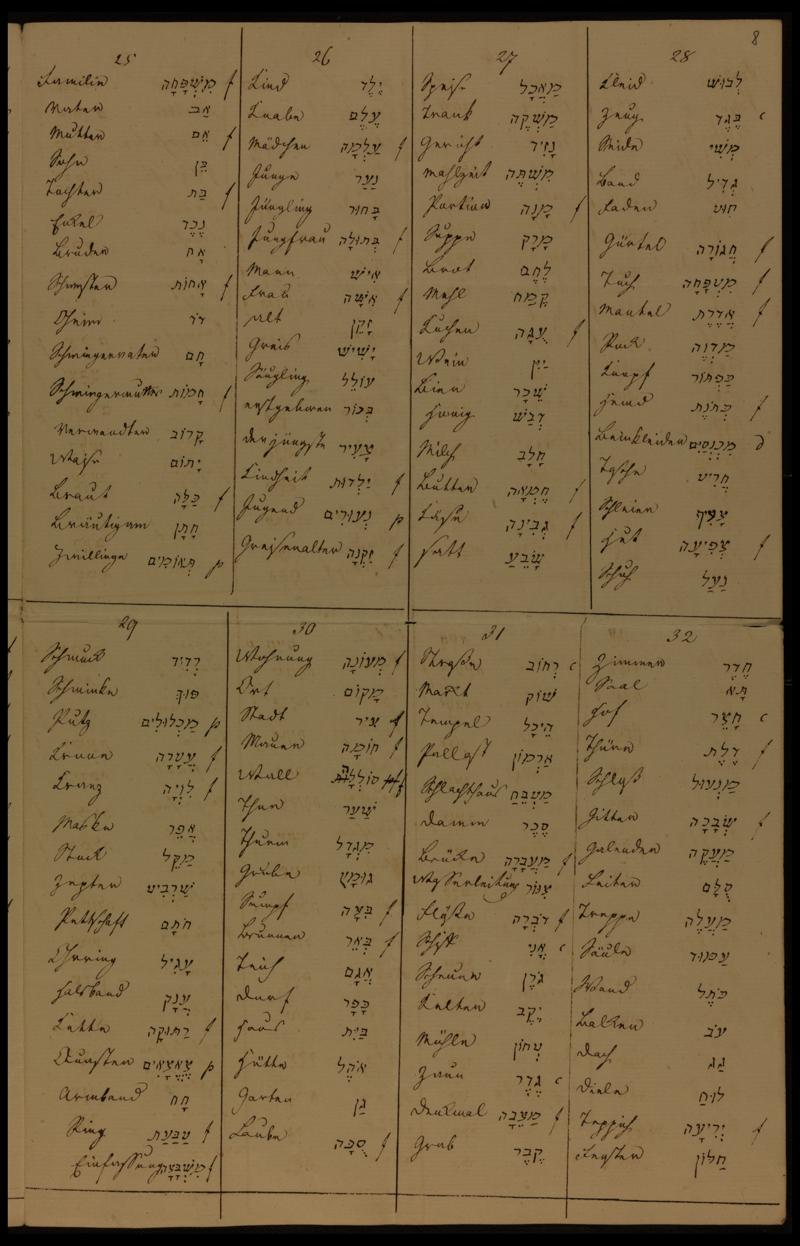 8
25
Familie מִשְׁפָּחָה f
Vater אַב
Mutter אֵם f
Sohn בֵּן
Tochter בַּת f
Enkel נֶכֶד
Bruder אָח
Schwester אָחוֹת f
Oheim דּוֹד
Schwiegervater חָם
Schwiegermutter חָמוֹת f
Verwandter קָרוֹב
Waise יָתוֹם
Braut כַּלָּה f
Bräutigam חָתָן
Zwillinge תְּאוֹמִים p
26
Kind יֶלֶד
Knabe עֶלֶם
Mädchen עַלְמָה f
Junge נַעַר
Jüngling בָּחוּר
Jungfrau בְּתוּלָה f
Mann אִישׁ
Frau אִשָּׁה f
alt זָקֵן
Greis יָשִׁישׁ
Säugling עוֹלֵל
erstgeboren בְּכוֹר
der jüngste צָעִיר
Kindheit יַלְדוּת f
Jugend נְעוּרִים p
Greisenalter זִקְנָה f
27
Speise מַאֲכָל
Trank מַשְׁקֶה
Gericht נָזִיד
Mahlzeit מִשְׁתֶּה
Portion מָנָה f
Suppe מָרָק
Brot לֶחֶם
Mehl קֶמַח
Kuchen עֻגָה f
Wein יַיִן
Bier שֵׁכָר
Honig דְּבַשׁ
Milch חָלָב
Butter חֶמְאָה f
Käse גְּבִינָה f
satt שָׂבֵעַ
28
Kleid לְבוּשׁ
Zeug בֶּגֶד c
Seide מֶשִׁי
Band גְּדִיל
Faden חוּט
Gürtel חֲגוֹרָה f
Tuch מִטְפָּחָה f
Mantel אַדֶּרֶת f
Rock מַדְוֶה
Knopf כַּפְתּוֹר
Hemd כְּתֹנֶת f
Beinkleider מִכְנָסַיִם d
Tasche חָרִיט
Schleier צָעִיף
Hut צְפִיעָה f
Schuh נַעַל
29
Schmuck רְדִיד
Schminke פּוּךְ
Putz מַכְלוּלִים p
Krone עֲטָרָה f
Kranz לִוְיָה f
Maske אֲפֵר
Stock מַקֵּל
Zepter שַׁרְבִיט
Pettschaft חֹתָם
Ohrring עָגִיל
Halsband עֲנָק
Kette רַתּוּקָה f
Quasten צֶאֱצָאִים p
Armband חָח
Ring טַבַּעַת f
Einfassung מִשְׁבְּצָה f
30
Wohnung מְעוֹנָה f
Ort מָקוֹם
Stadt עִיר f
Mauer חוֹמָה f
Wall סוֹלְלָה f
Thor שַׁעַר
Thurm מִגְדָּל
Grube גּוּמָּץ
Sumpf בִּצָּה f
Brunnen בְּאֵר f
Teich אֲגַם
Dorf כָּפָר
Haus בַּיִת
Hütte אֹהֶל
Garten גַּן
Laube סֻכָּה f
31
Straße רְחוֹב c
Markt שׁוּק
Tempel הֵיכָל
Pallast אַרְמוֹן
Schlachthaus מַטְבֵּחַ
Damm סֶכֶר
Brücke מַעְבָּרָה f
Wasserleitung צִנּוֹר
Flöße דּוֹבְרָה f
Schiff אֳנִי c
Scheuer גֹּרֶן
Kelter יֶקֶב
Mühle טְחוֹן
Zaun גָּדֵר c
Denkmal מַצֵּבָה f
Grab קֶבֶר
32
Zimmer חֶדֶר
Saal תָּא
Hof חָצֵר c
Thüre דֶּלֶת f
Schloß מַנְעוּל
Gitter שְׂבָכָה f
Gelender מַעֲקֶה
Leiter סֻלָּם
Treppe מַעֲלֶה
Säule עַמּוּד
Wand כֹּתֶל
Balken עֹב
Dach גַּג
Diele לוּחַ
Teppich יְרִיעָה f
Fenster חַלּוֹן